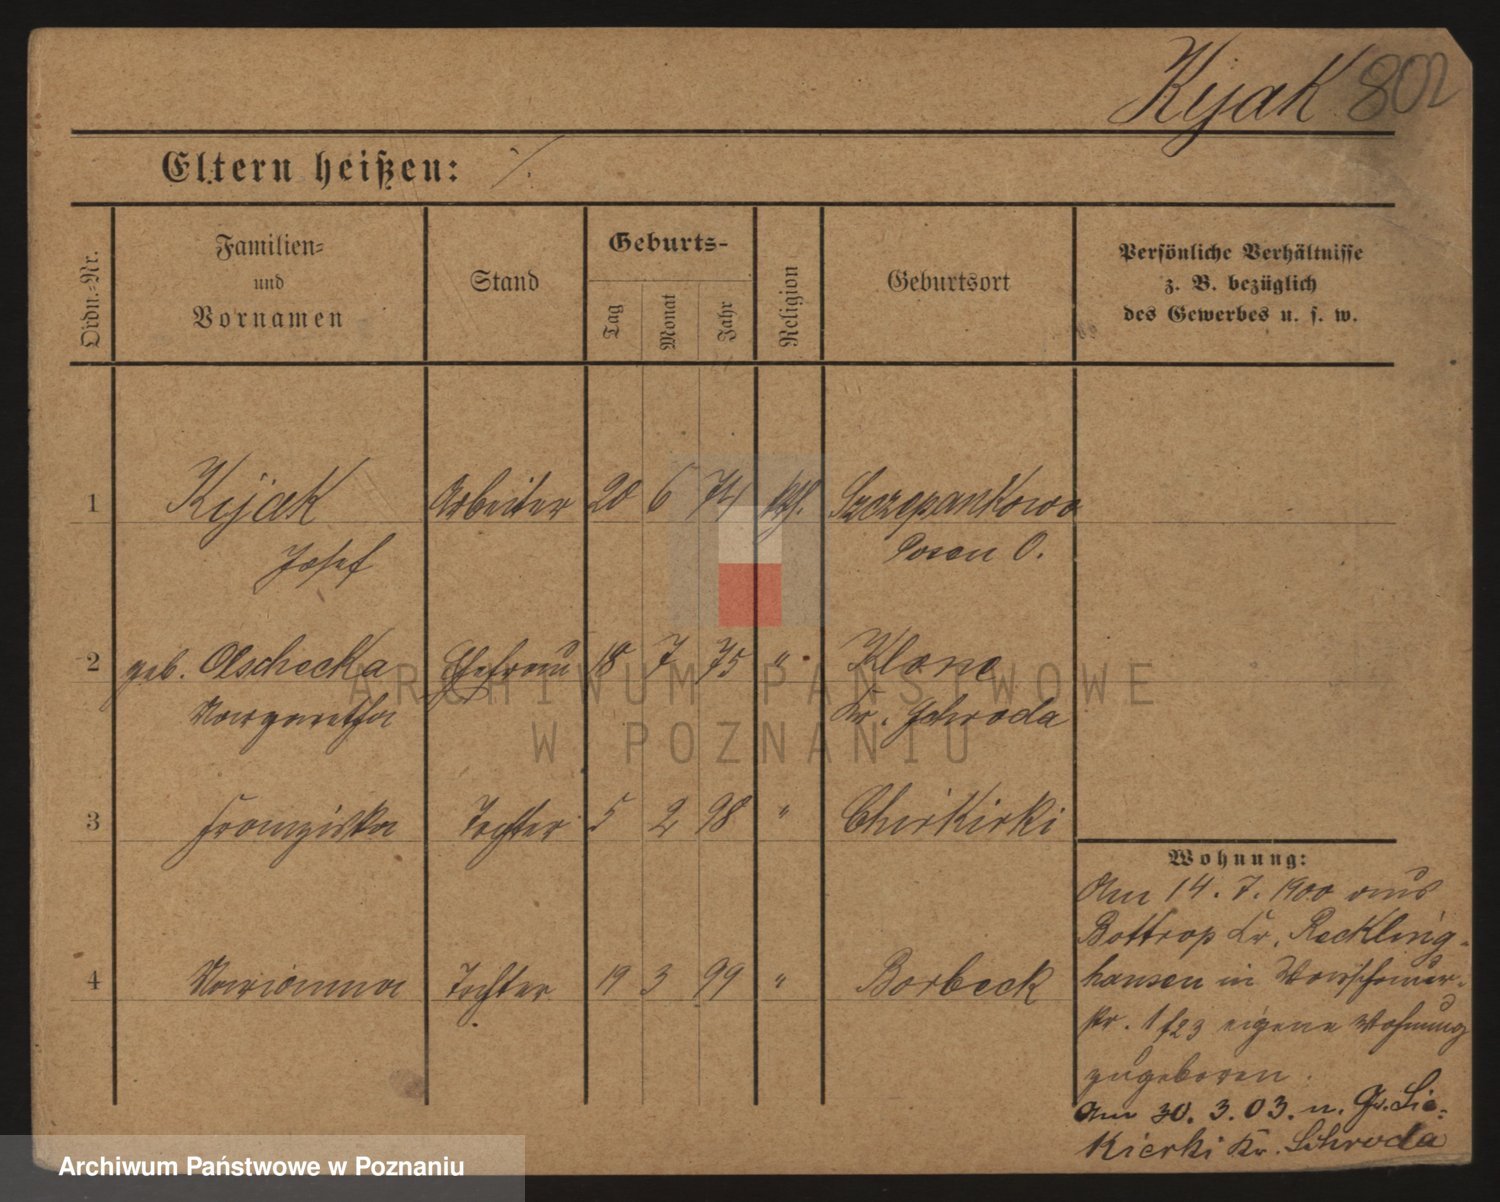 Kijak 802
Eltern heißen: ./.
Ordn.-Nr.
Familien-
und
Vornamen
Stand
Geburts-
Tag
Monat
Jahr
Religion
Geburtsort
Persönliche Verhältnisse
z. B. bezüglich
des Gewerbes u. s. w.
1 Kijak Arbeiter 20 6 74 kth. Szczepankowo
Josef Posen O.
2 geb. Olschecka Ehefrau 18 7 75 " Klone
Margaretha Kr. Schroda
3 Franziska Tochter 5 2 98 "
4 Marianna Tochter 19 3 99 " Borbeck
Wohnung:
Am 14. 7. 1900 aus
Bottrop Kr. Reckling-
hausen in
eigene Wohnung
zugeboren.
Am 30. 3. 03. n. Gr. Sie-
kierki Kr. Schroda
ARCHIWUM PAŃSTWOWE
W POZNANIU
Archiwum Państwowe w Poznaniu